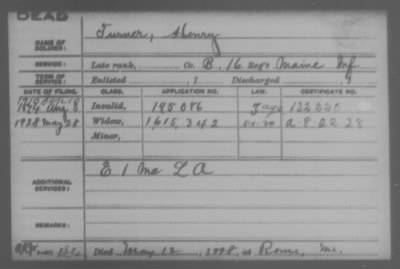 DEAD
NAME OF SOLDIER: Turner, Henry
SERVICE: Late rank, Co. B, 16 Reg't Maine Inf
TERM OF SERVICE: Enlisted , 1 Discharged , 1
DATE OF FILING. CLASS. APPLICATION NO. LAW. CERTIFICATE NO.
Aug 8 Invalid, 195 086 122 220
1928 May 28 Widow, 1,615,342 a-8-22-28
Minor,
ADDITIONAL SERVICES: E 1 Me L A
REMARKS:
Died May 12, 1928, at Rome, Me.